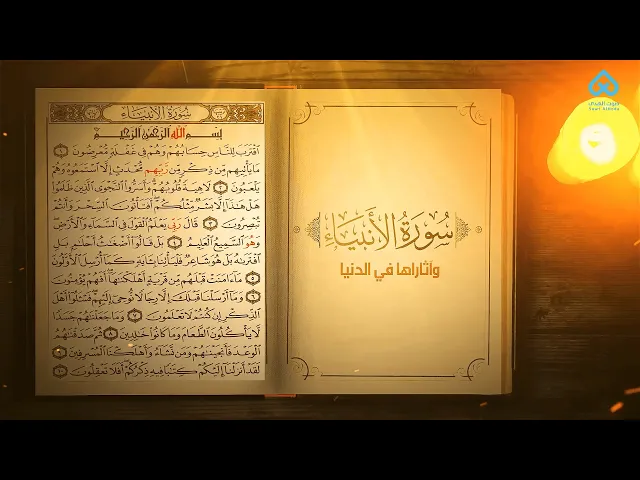 سُورَةُ الأَنْبِيَاءِ
بِسْمِ اللَّهِ الرَّحْمَٰنِ الرَّحِيمِ
اقْتَرَبَ لِلنَّاسِ حِسَابُهُمْ وَهُمْ فِي غَفْلَةٍ مُعْرِضُونَ ١
مَا يَأْتِيهِم مِّن ذِكْرٍ مِّن رَّبِّهِم مُّحْدَثٍ إِلَّا اسْتَمَعُوهُ وَهُمْ
يَلْعَبُونَ ٢ لَاهِيَةً قُلُوبُهُمْ وَأَسَرُّوا النَّجْوَى الَّذِينَ ظَلَمُوا
هَلْ هَٰذَا إِلَّا بَشَرٌ مِّثْلُكُمْ أَفَتَأْتُونَ السِّحْرَ وَأَنتُمْ
تُبْصِرُونَ ٣ قَالَ رَبِّي يَعْلَمُ الْقَوْلَ فِي السَّمَاءِ وَالْأَرْضِ
وَهُوَ السَّمِيعُ الْعَلِيمُ ٤ بَلْ قَالُوا أَضْغَاثُ أَحْلَامٍ بَلِ
افْتَرَاهُ بَلْ هُوَ شَاعِرٌ فَلْيَأْتِنَا بِآيَةٍ كَمَا أُرْسِلَ الْأَوَّلُونَ
٥ مَا آمَنَتْ قَبْلَهُم مِّن قَرْيَةٍ أَهْلَكْنَاهَا أَفَهُمْ يُؤْمِنُونَ
٦ وَمَا أَرْسَلْنَا قَبْلَكَ إِلَّا رِجَالًا نُّوحِي إِلَيْهِمْ فَسْئَلُوا أَهْلَ
الذِّكْرِ إِن كُنتُمْ لَا تَعْلَمُونَ ٧ وَمَا جَعَلْنَاهُمْ جَسَدًا
لَّا يَأْكُلُونَ الطَّعَامَ وَمَا كَانُوا خَالِدِينَ ٨ ثُمَّ صَدَقْنَاهُمُ
الْوَعْدَ فَأَنجَيْنَاهُمْ وَمَن نَّشَاءُ وَأَهْلَكْنَا الْمُسْرِفِينَ ٩
لَقَدْ أَنزَلْنَا إِلَيْكُمْ كِتَابًا فِيهِ ذِكْرُكُمْ أَفَلَا تَعْقِلُونَ ١٠
سُورَةُ الأَنْبِيَاءِ
وآثاراها في الدنيا
صوت الهدى